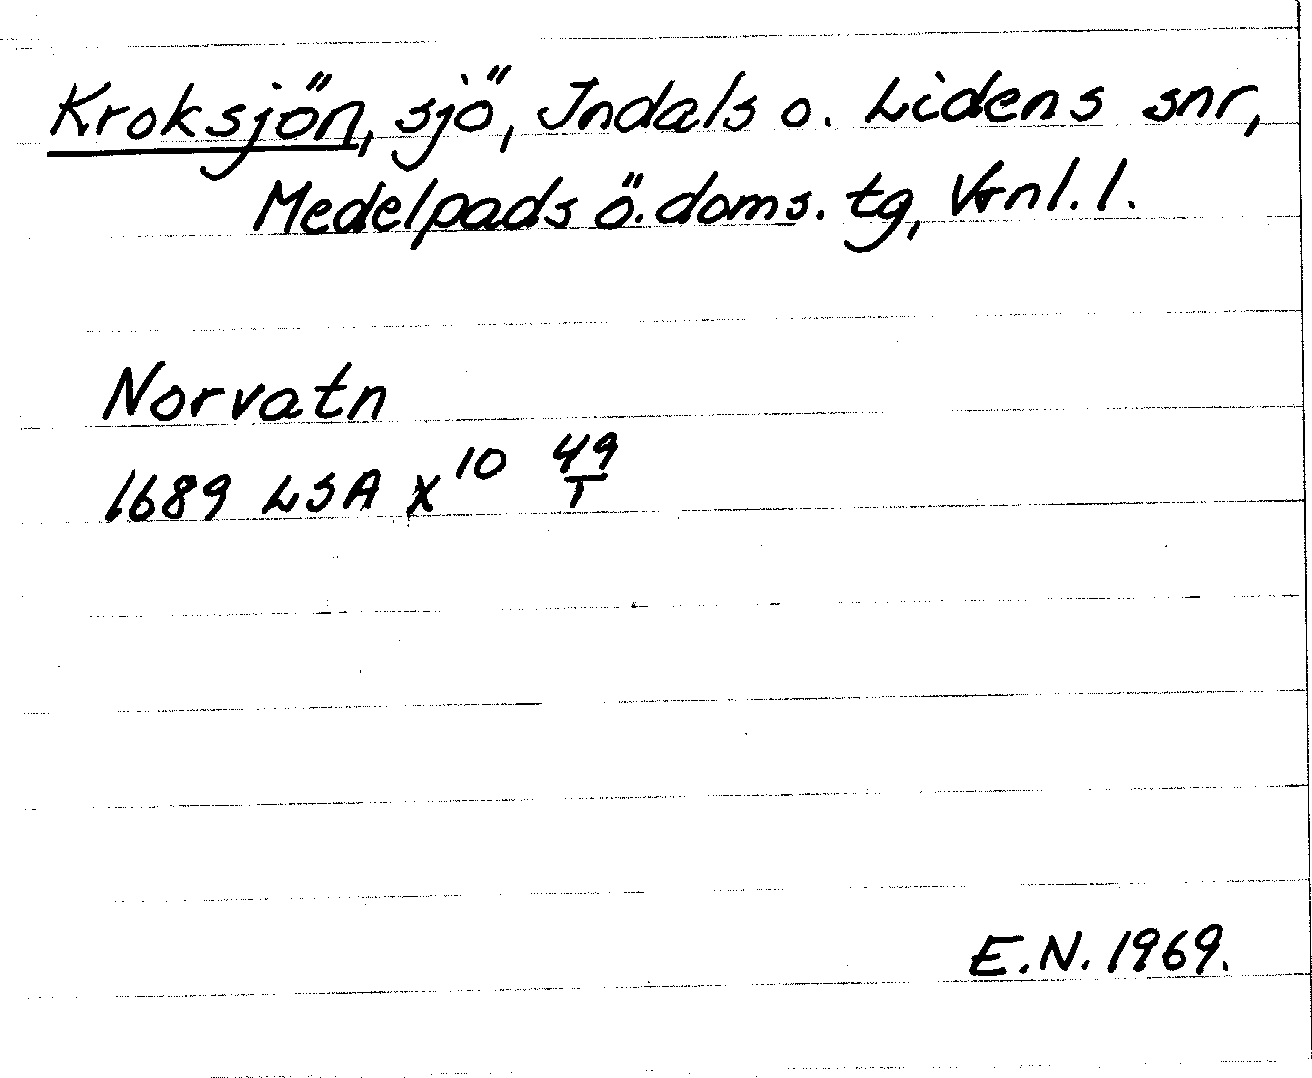 Kroksjön, sjö, Indals o. Lidens snr,
Medelpads ö. doms. tg, Vrnl. l.
Norvatn
1689 LSA X 10 49/1
E.N. 1969.